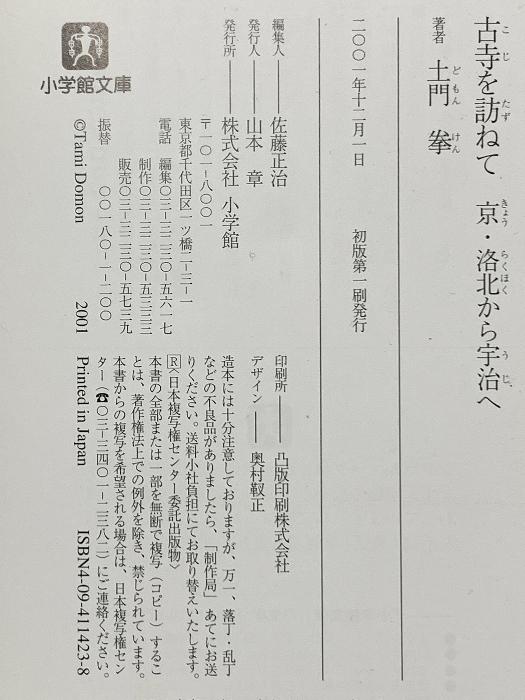 古寺を訪ねて 京・洛北から宇治へ
こじ たず きょう らくほく うじ
著者 土門 拳
どもん けん
二〇〇一年十二月一日 初版第一刷発行
編集人 佐藤正治
発行人 山本 章
発行所 株式会社 小学館
〒一〇一-八〇〇一
東京都千代田区一ツ橋二-三-一
電話 編集〇三-三二三〇-五六一七
制作〇三-三二三〇-五三三三
販売〇三-三二三〇-五七三九
振替 〇〇一八〇-一-二〇〇
印刷所 凸版印刷株式会社
デザイン 奥村靫正
造本には十分注意しておりますが、万一、落丁・乱丁
などの不良品がありましたら、「制作局」あてにお送
りください。送料小社負担にてお取り替えいたします。
R〈日本複写権センター委託出版物〉
本書の全部または一部を無断で複写(コピー)するこ
とは、著作権法上での例外を除き、禁じられています。
本書からの複写を希望される場合は、日本複写権セン
ター(☎〇三-三四〇一-二三八二)にご連絡ください。
©Tami Domon 2001 Printed in Japan ISBN4-09-411423-8
小学館文庫